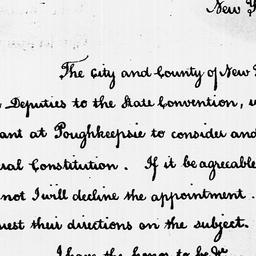 New Y
The City and County of New Y
Deputies to the State Convention, 
ant at Poughkeepsie to consider and
ral Constitution. If it be agreeable
not I will decline the appointment.
uest their directions on the subject.
I have the honor to be &c